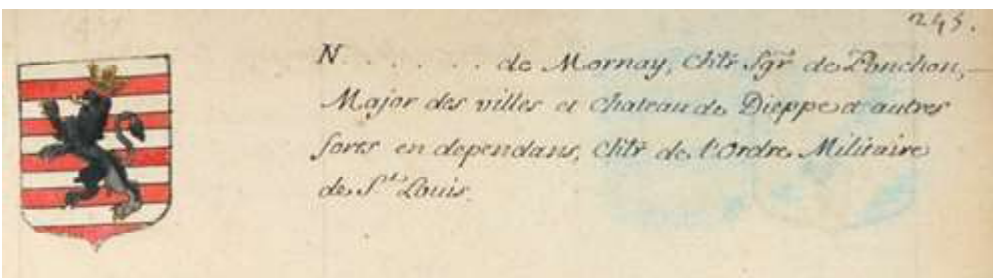 245.
N . . . . . . de Mornay, Chlr Sgr de Ponchon,
Major des villes et Chateau de Dieppe et autres
forts en dependans, Chlr de l'Ordre Militaire
de St. Louis.